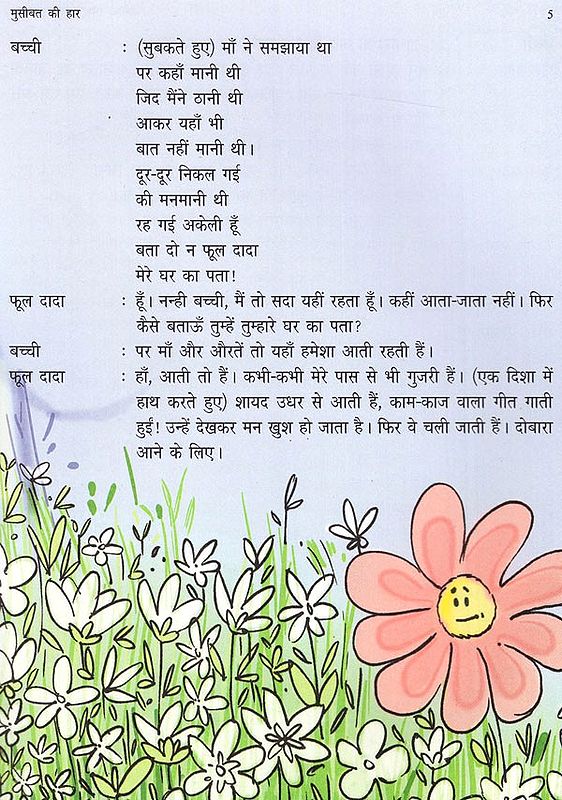 मुसीबत की हार 5
बच्ची : (सुबकते हुए) माँ ने समझाया था
पर कहाँ मानी थी
जिद मैंने ठानी थी
आकर यहाँ भी
बात नहीं मानी थी।
दूर-दूर निकल गई
की मनमानी थी
रह गई अकेली हूँ
बता दो न फूल दादा
मेरे घर का पता!
फूल दादा : हूँ। नन्ही बच्ची, मैं तो सदा यहीं रहता हूँ। कहीं आता-जाता नहीं। फिर
कैसे बताऊँ तुम्हें तुम्हारे घर का पता?
बच्ची : पर माँ और औरतें तो यहाँ हमेशा आती रहती हैं।
फूल दादा : हाँ, आती तो हैं। कभी-कभी मेरे पास से भी गुजरी हैं। (एक दिशा में
हाथ करते हुए) शायद उधर से आती हैं, काम-काज वाला गीत गाती
हुईं! उन्हें देखकर मन खुश हो जाता है। फिर वे चली जाती हैं। दोबारा
आने के लिए।